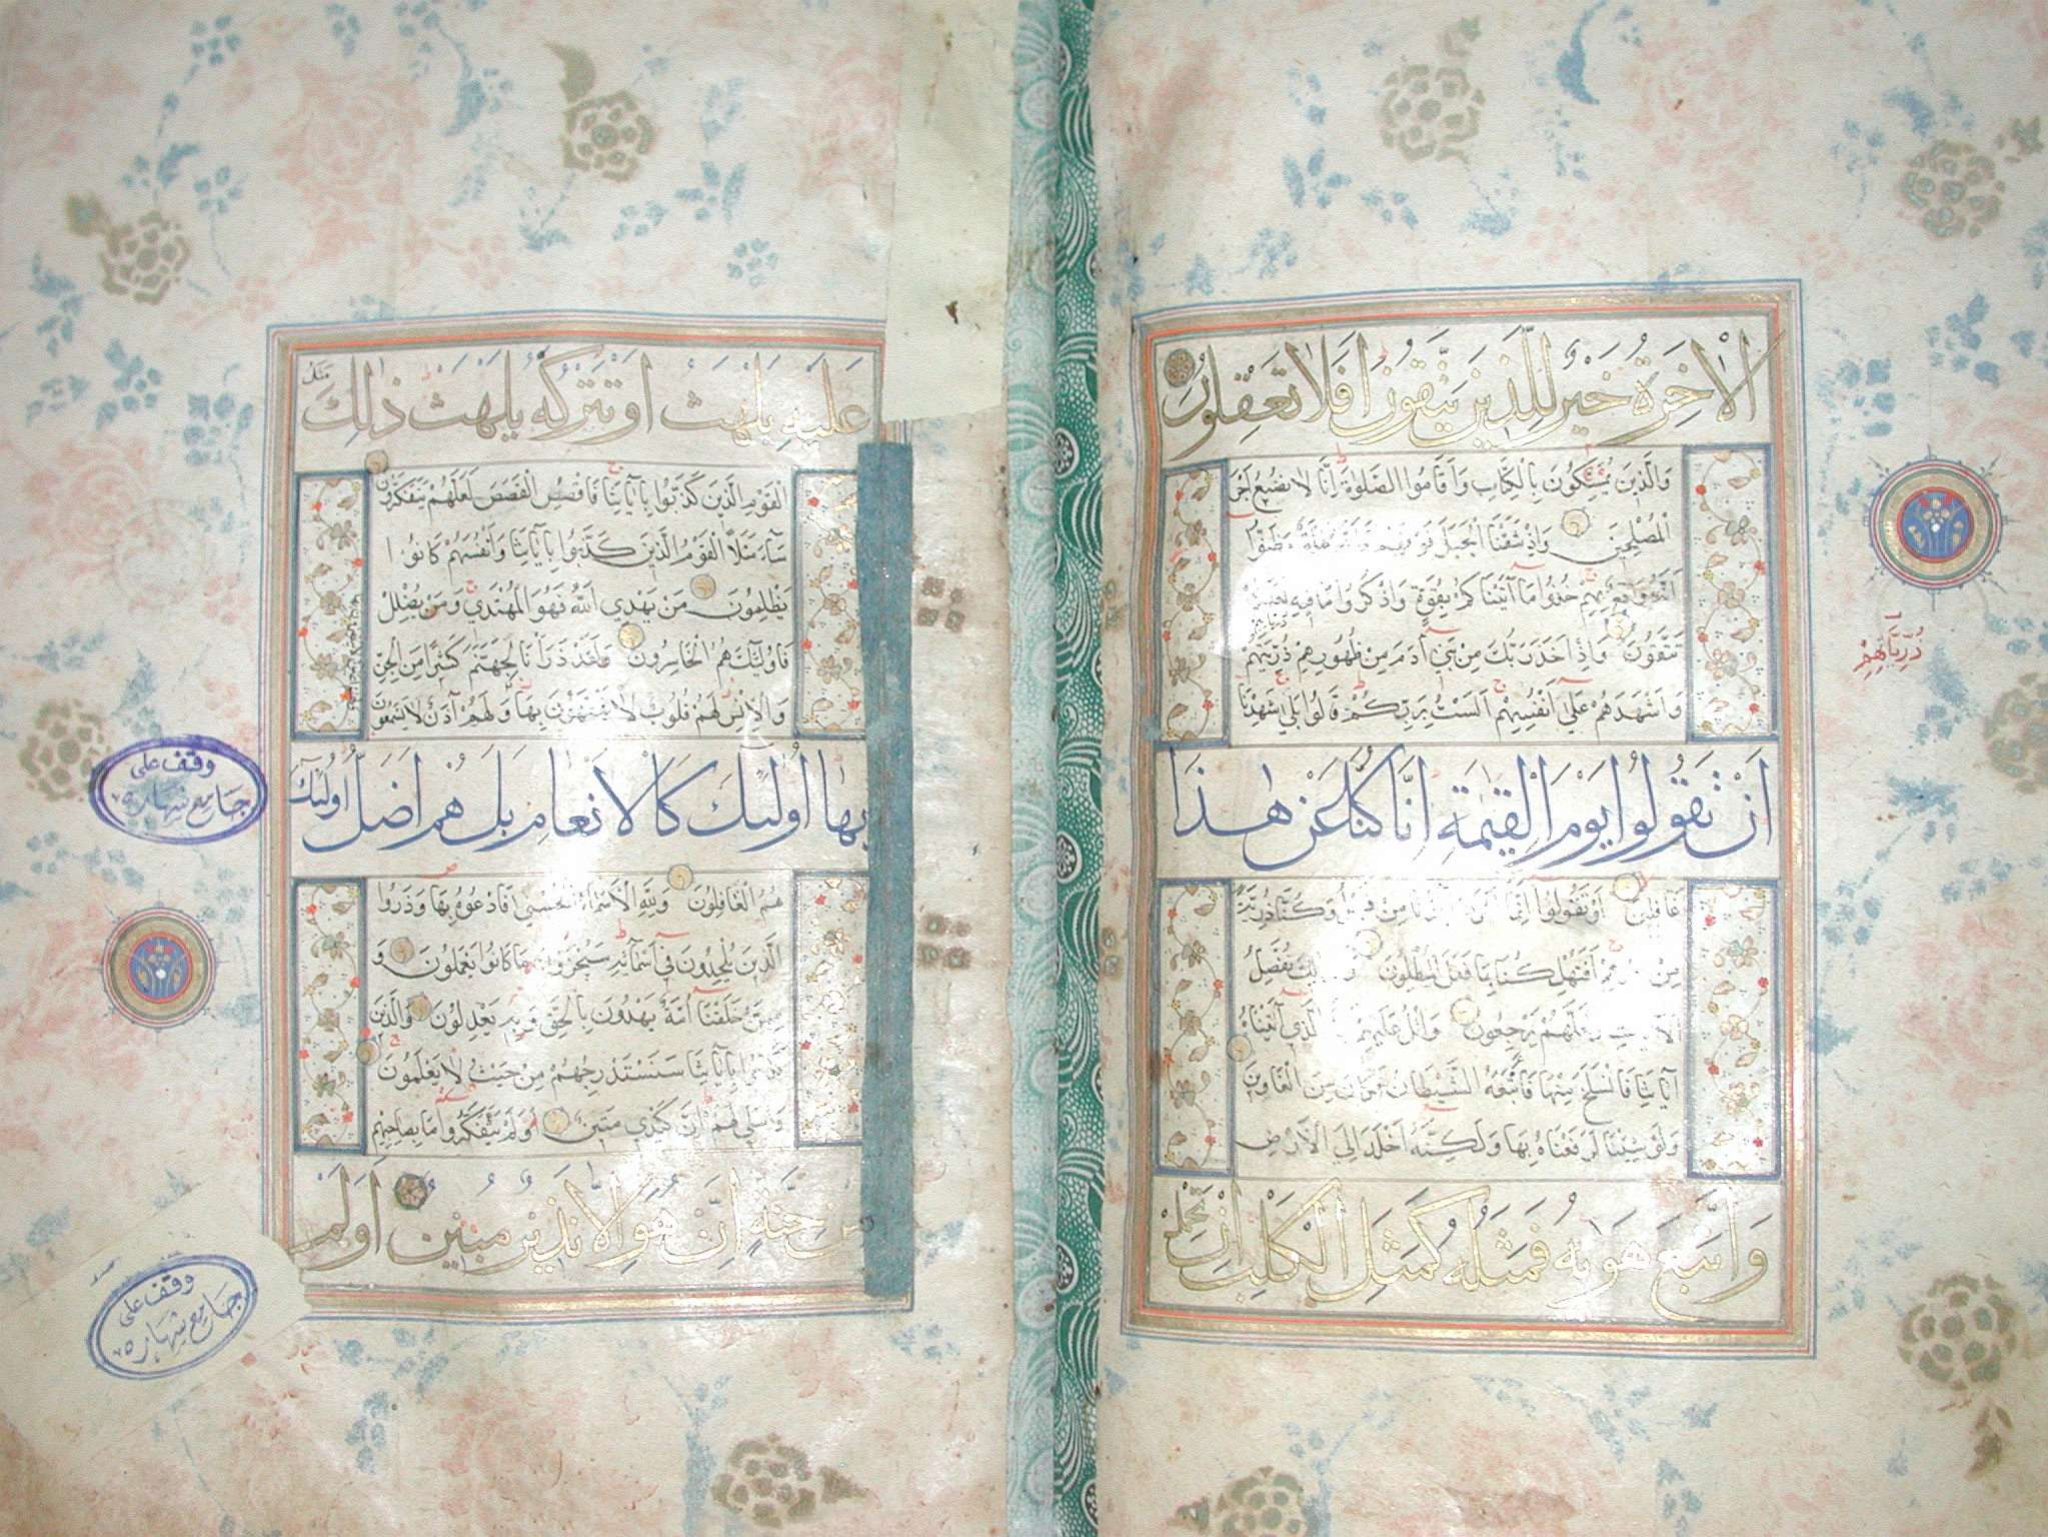 الْاٰخِرَةُ خَيْرٌ لِلَّذِينَ يَتَّقُونَ اَفَلَا تَعْقِلُونَ
وَالَّذِينَ يُمَسِّكُونَ بِالْكِتَابِ وَاَقَامُوا الصَّلٰوةَ اِنَّا لَا نُضِيعُ اَجْرَ
الْمُصْلِحِينَ وَاِذْ نَتَقْنَا الْجَبَلَ فَوْقَهُمْ كَاَنَّهُ ظُلَّةٌ وَظَنُّوا
اَنَّهُ وَاقِعٌ بِهِمْ خُذُوا مَا آتَيْنَاكُمْ بِقُوَّةٍ وَاذْكُرُوا مَا فِيهِ لَعَلَّكُمْ
تَتَّقُونَ وَاِذْ اَخَذَ رَبُّكَ مِنْ بَنِي آدَمَ مِنْ ظُهُورِهِمْ ذُرِّيَّتَهُمْ
وَاَشْهَدَهُمْ عَلٰى اَنْفُسِهِمْ اَلَسْتُ بِرَبِّكُمْ قَالُوا بَلٰى شَهِدْنَا
اَنْ تَقُولُوا يَوْمَ الْقِيٰمَةِ اِنَّا كُنَّا عَنْ هٰذَا
غَافِلِينَ اَوْ تَقُولُوا اِنَّمَا مِنْ قَبْلُ وَكُنَّا ذُرِّيَّةً
مِنْ اَفَتُهْلِكُنَا بِمَا فَعَلَ الْمُبْطِلُونَ نُفَصِّلُ
يَرْجِعُونَ وَاتْلُ عَلَيْهِمْ الَّذِي آتَيْنَاهُ
آيَاتِنَا فَانْسَلَخَ مِنْهَا فَاَتْبَعَهُ الشَّيْطَانُ فَكَانَ مِنَ الْغَاوِينَ
وَلَوْ شِئْنَا لَرَفَعْنَاهُ بِهَا وَلٰكِنَّهُ اَخْلَدَ اِلَى الْاَرْضِ
وَاتَّبَعَ هَوٰيهُ فَمَثَلُهُ كَمَثَلِ الْكَلْبِ اِنْ تَحْمِلْ
ذُرِّيَّاتِهِمْ
عَلَيْهِ يَلْهَثْ اَوْ تَتْرُكْهُ يَلْهَثْ ذٰلِكَ مَثَلُ
الْقَوْمِ الَّذِينَ كَذَّبُوا بِآيَاتِنَا فَاقْصُصِ الْقَصَصَ لَعَلَّهُمْ يَتَفَكَّرُونَ
سَآءَ مَثَلًا الْقَوْمُ الَّذِينَ كَذَّبُوا بِآيَاتِنَا وَاَنْفُسَهُمْ كَانُوا
يَظْلِمُونَ مَنْ يَهْدِي اللّٰهُ فَهُوَ الْمُهْتَدِي وَمَنْ يُضْلِلْ
فَاُولٰٓئِكَ هُمُ الْخَاسِرُونَ وَلَقَدْ ذَرَأْنَا لِجَهَنَّمَ كَثِيرًا مِنَ الْجِنِّ
وَالْاِنْسِ لَهُمْ قُلُوبٌ لَا يَفْقَهُونَ بِهَا وَلَهُمْ آذَانٌ لَا يَسْمَعُونَ
بِهَا اُولٰٓئِكَ كَالْاَنْعَامِ بَلْ هُمْ اَضَلُّ اُولٰٓئِكَ
هُمُ الْغَافِلُونَ وَلِلّٰهِ الْاَسْمَآءُ الْحُسْنٰى فَادْعُوهُ بِهَا وَذَرُوا
الَّذِينَ يُلْحِدُونَ فِي اَسْمَآئِهِ سَيُجْزَوْنَ مَا كَانُوا يَعْمَلُونَ وَ
مِمَّنْ خَلَقْنَا اُمَّةٌ يَهْدُونَ بِالْحَقِّ وَبِهِ يَعْدِلُونَ وَالَّذِينَ
كَذَّبُوا بِآيَاتِنَا سَنَسْتَدْرِجُهُمْ مِنْ حَيْثُ لَا يَعْلَمُونَ
وَاُمْلِي لَهُمْ اِنَّ كَيْدِي مَتِينٌ اَوَلَمْ يَتَفَكَّرُوا مَا بِصَاحِبِهِمْ
مِنْ جِنَّةٍ اِنْ هُوَ اِلَّا نَذِيرٌ مُبِينٌ اَوَلَمْ
وقف على
جامع شهاره
وقف على
جامع شهاره